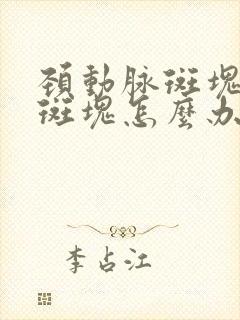 頚動脉斑塊
斑塊怎麽办
李占江